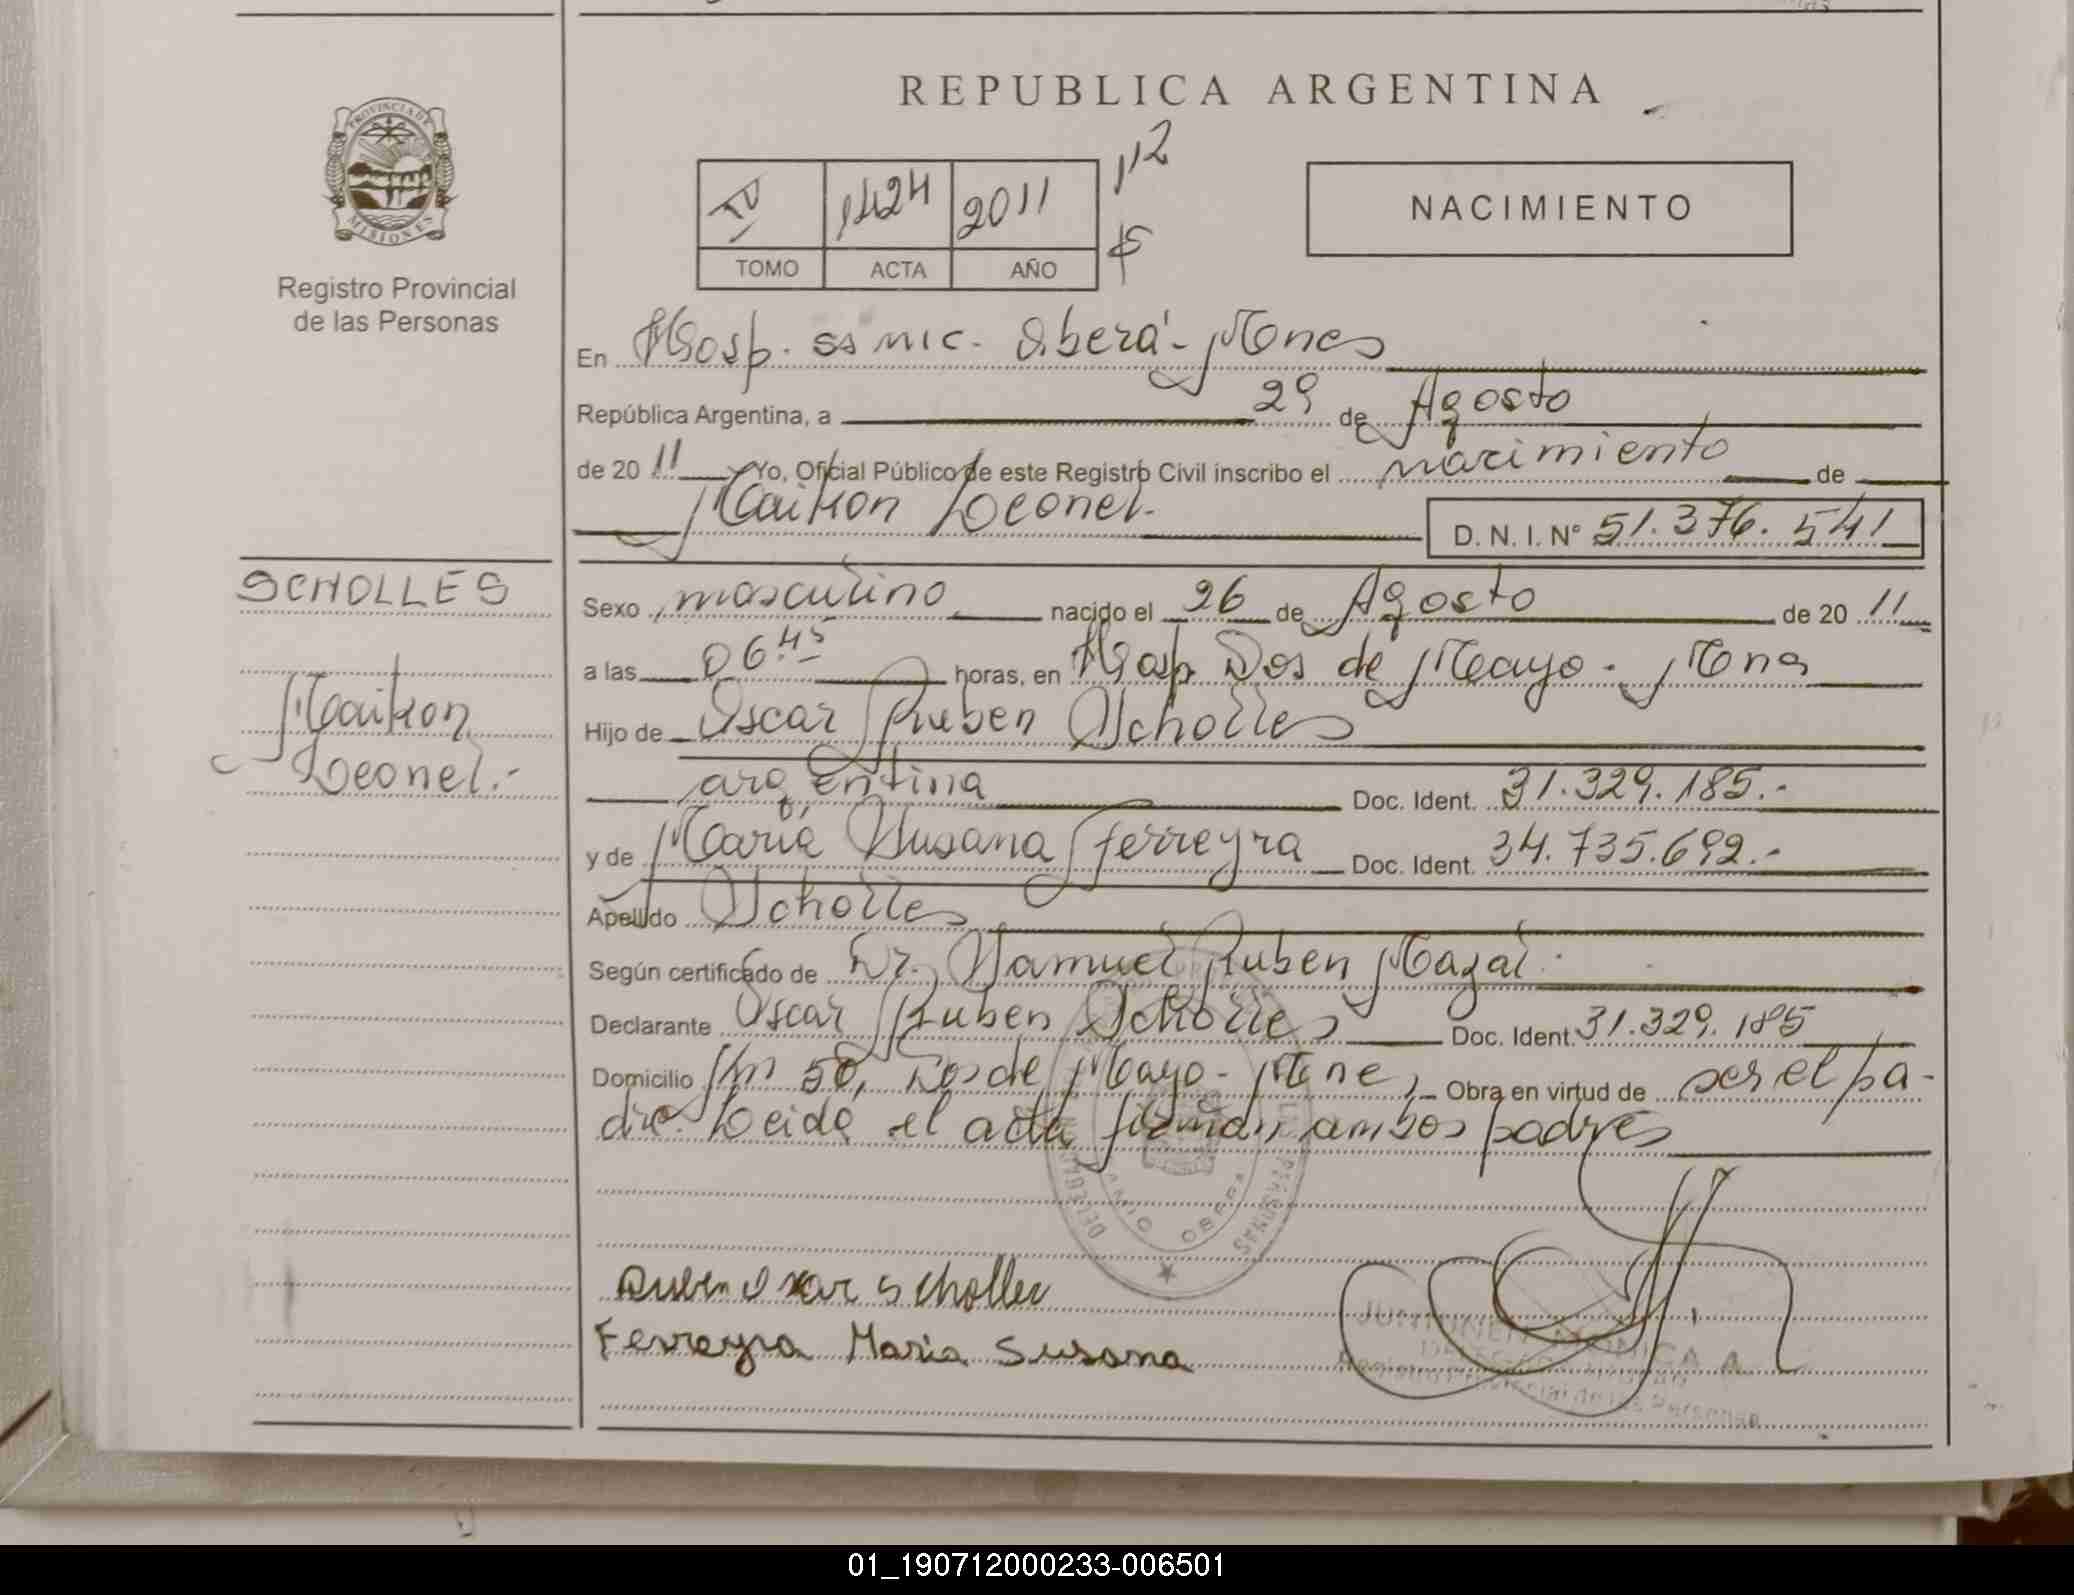 REPUBLICA ARGENTINA
PROVINCIA DE
MISIONES
Registro Provincial
de las Personas
IV 1424 2011
TOMO ACTA AÑO
112
NACIMIENTO
En Hosp. ss mic. Oberá - Mnes
República Argentina, a 29 de Agosto
de 2011 Yo, Oficial Público de este Registro Civil inscribo el nacimiento de
Maikon Leonel.
D. N. I. N° 51.376.541
SCHOLLES
Maikon
Leonel.-
Sexo masculino nacido el 26 de Agosto de 20 11
a las 06.45 horas, en Hosp Dos de Mayo - Mnes
Hijo de Oscar Ruben Scholles
argentina Doc. Ident. 31.329.185.-
y de María Susana Ferreyra Doc. Ident. 34.735.692.-
Apellido Scholles
Según certificado de Dr. Samuel Ruben Mazal.
Declarante Oscar Ruben Scholles Doc. Ident. 31.329.185
Domicilio Km 50, Dos de Mayo - Mnes, Obra en virtud de ser el pa-
dre. Leida el acta firman ambos padres
OBERA
PERSONAS
Ruben Oscar Scholles
Ferreyra Maria Susana
MONICA A
01_190712000233-006501